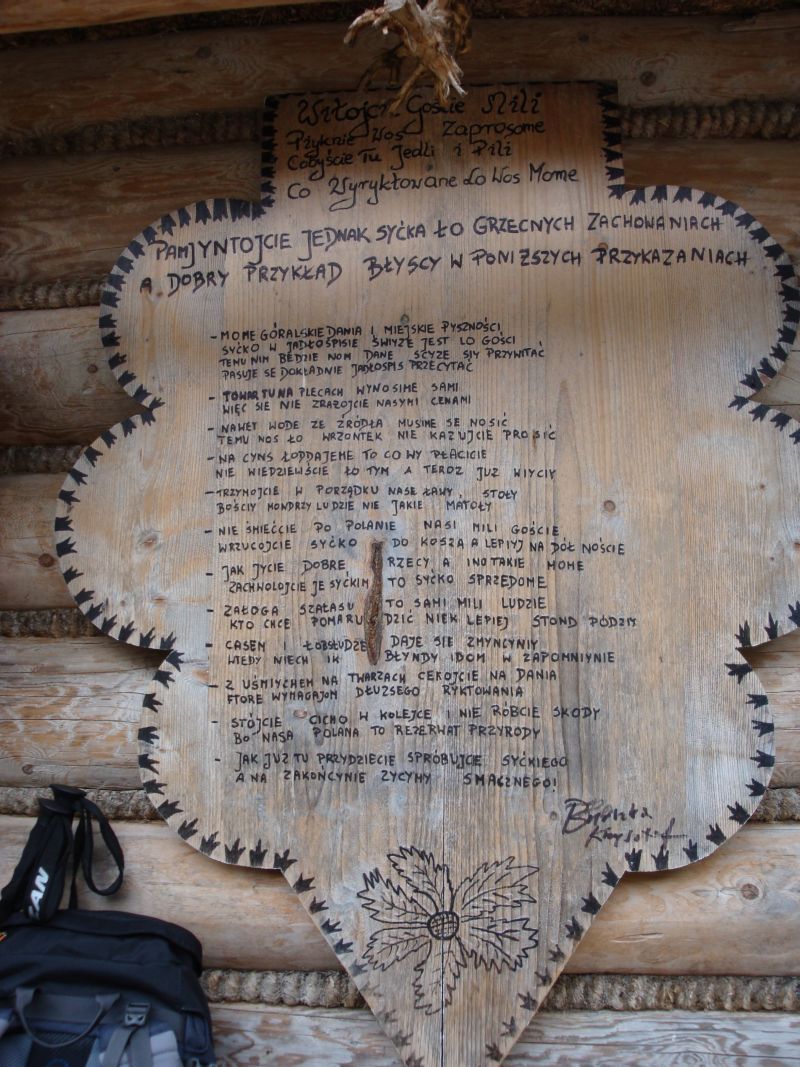 Witojcie Goście Mili
Piyknie Wos Zaprosome
Cobyście Tu Jedli i Pili
Co Wyryktowane Lo Wos Mome
PAMJYNTOJCIE JEDNAK SYĆKA ŁO GRZECNYCH ZACHOWANIACH
A DOBRY PRZYKŁAD BŁYSCY W PONIZSZYCH PRZYKAZANIACH
- MOME GÓRALSKIE DANIA I MIEJSKIE PYSZNOŚCI
SYĆKO W JADŁOSPISIE ŚWIYZE JEST LO GOŚCI
TEMU NIM BĘDZIE NOM DANE SCYZE SIY PRZYWITAĆ
PASUJE SE DOKŁADNIE JADŁOSPIS PRZECYTAĆ
- TOWAR TU NA PLECACH WYNOSIME SAMI
WIĘC SIE NIE ZRAZOJCIE NASYMI CENAMI
- NAWET WODE ZE ŹRÓDŁA MUSIME SE NOSIĆ
TEMU NOS ŁO WRZONTEK NIE KAZUJCIE PROSIĆ
- NA CYNS ŁODDAJEME TO CO WY PŁACICIE
NIE WIEDZIEWŚCIE ŁO TYM A TEROZ JUZ WIYCIY
- TRZYMOJCIE W PORZĄDKU NASE ŁAWY, STOŁY
BOŚCIY MONDRZY LUDZIE NIE JAKIE MATOŁY
- NIE ŚMIEĆCIE PO POLANIE NASI MILI GOŚCIE
WRZUCOJCIE SYĆKO DO KOSZA A LEPIYJ NA DÓŁ NOŚCIE
- JAK JYCIE DOBRE RZECY A INO TAKIE MOME
ZACHWOLOJCIE JE SYĆKIM TO SYĆKO SPRZEDOME
- ZAŁOGA SZAŁASU TO SAMI MILI LUDZIE
KTO CHCE POMARUDZIĆ NIEK LEPIEJ STOND PÓDZIE
- CASEM I ŁOBSŁUDZE DAJE SIE ZMYNCYNIY
WTEDY NIECH IK BŁYNDY IDOM W ZAPOMNIYNIE
- Z UŚMIYCHEM NA TWARZACH CEKOJCIE NA DANIA
KTÓRE WYMAGAJOM DŁUZSEGO RYKTOWANIA
- STÓJCIE CICHO W KOLEJCE I NIE RÓBCIE SKODY
BO NASA POLANA TO REZERWAT PRZYRODY
- JAK JUZ TU PRZYDZIECIE SPRÓBUJCIE SYĆKIEGO
A NA ZAKOŃCYNIE ZYCYMY SMACZNEGO!
Krzysztof
CAN